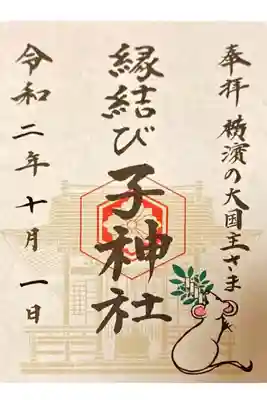 奉拝 横濱の大国主さま
縁結び 子神社
令和二年十月一日